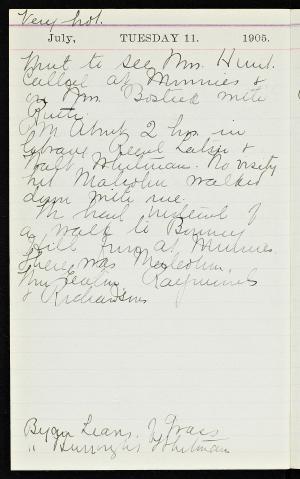 Very hot.
July, TUESDAY 11. 1905.
Went to see Mrs. Hunt.
Called at Minnie's &
on Mrs. Bostick with
Ruth.
P.M. About 2 hrs. in
library. Read Latin &
Walt Whitman. No visitors
but Malcolm walked
down with me.
In instead of
a walk to Bouncy
Hill fun at Minnie's
There was Malcolm,
Raymonds
& Richardsons
Began Leaves of Grass
" Burroughs Whitman